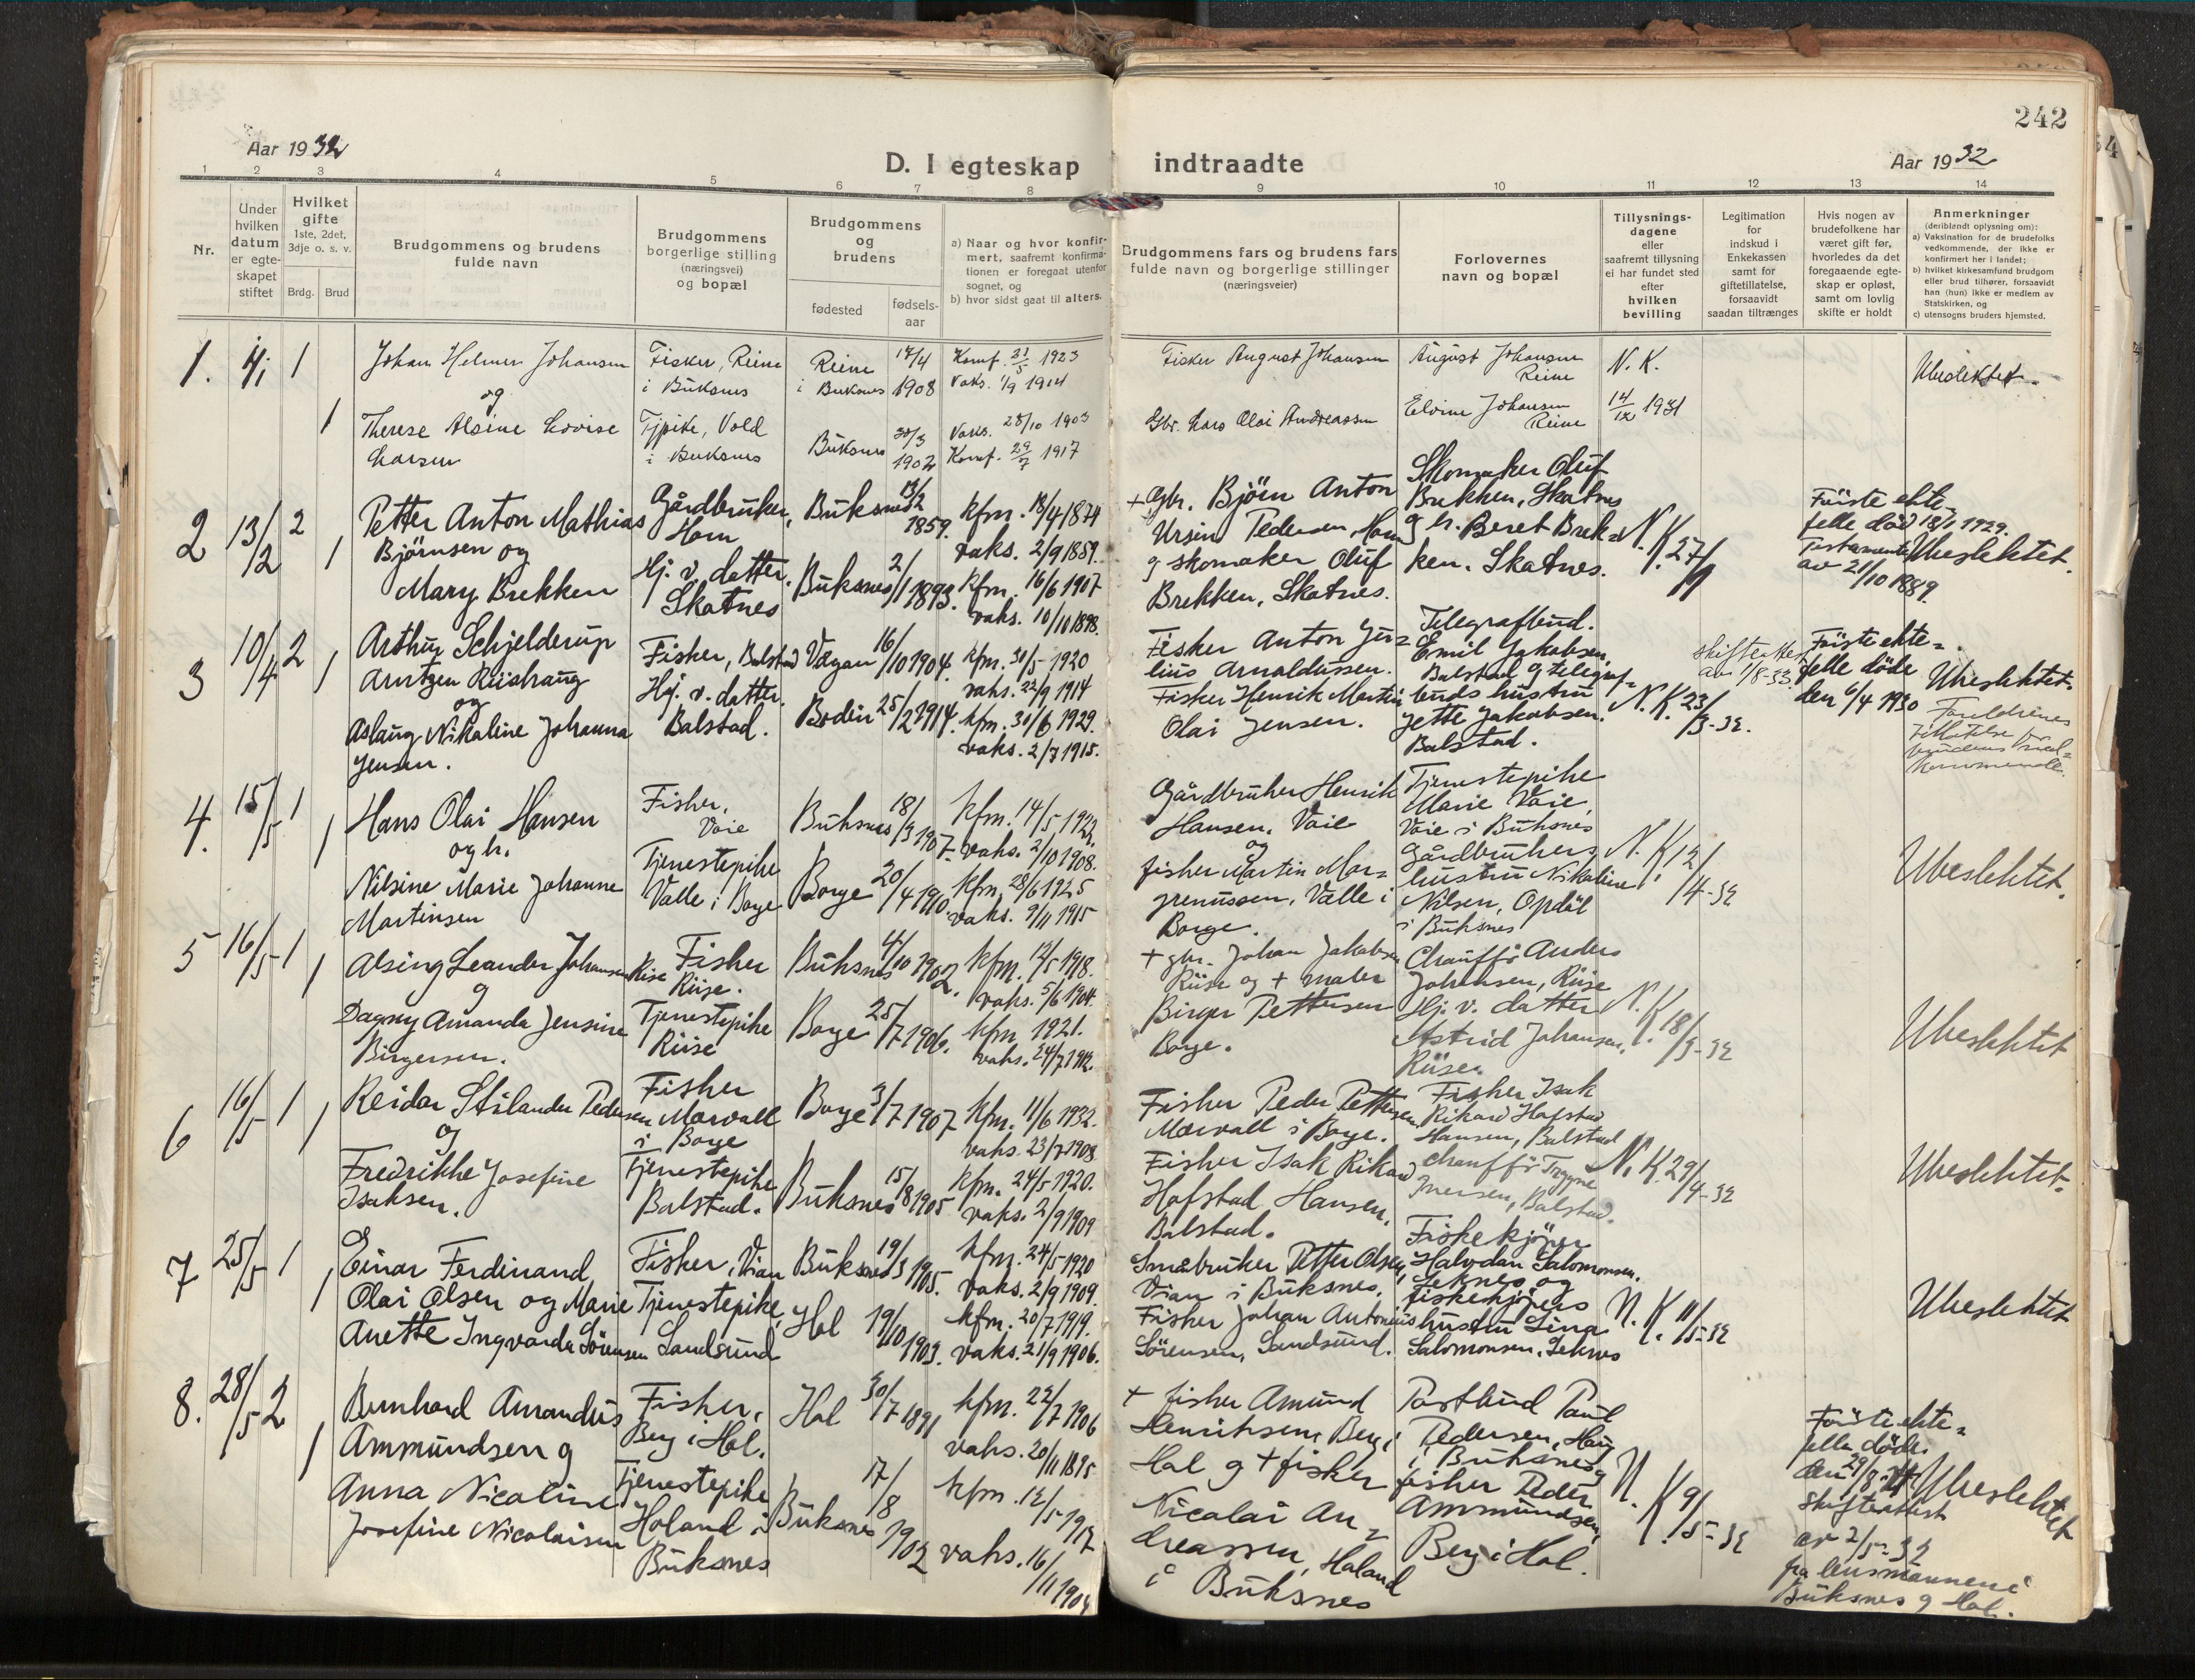 242
Aar 1932
D. I egteskap indtraadte
Aar 1932
1 2 3 4 5 6 7 8 9 10 11 12 13 14
Nr.
Under hvilken datum er egte-skapet stiftet
Hvilket gifte
1ste, 2det, 3dje o. s. v.
Brdg. Brud
Brudgommens og brudens
fulde navn
Brudgommens
borgerlige stilling
(næringsvei)
og bopæl
Brudgommens
og
brudens
fødested
fødsels-
aar
a) Naar og hvor konfir-
mert, saafremt konfirma-
tionen er foregaat utenfor
sognet, og
b) hvor sidst gaat til alters.
Brudgommens fars og brudens fars
fulde navn og borgerlige stillinger
(næringsveier)
Forlovernes
navn og bopæl
Tillysnings-
dagene
eller
saafremt tillysning
ei har fundet sted
efter
hvilken
bevilling
Legitimation
for
indskud i
Enkekassen
samt for
giftetillatelse,
forsaavidt
saadan tiltrænges
Hvis nogen av
brudefolkene har
været gift før,
hvorledes da det
foregaaende egte-
skap er opløst,
samt om lovlig
skifte er holdt
Anmerkninger
(deriblandt oplysning om):
a) Vaksination for de brudefolks
vedkommende, der ikke er
konfirmert her i landet;
b) hvilket kirkesamfund brudgom
eller brud tilhører, forsaavidt
han (hun) ikke er medlem av
Statskirken, og
c) utensogns bruders hjemsted.
1. 4/1 1
Johan Helmer Johansen
og
1 Therese Alsine Lovise
Larsen
Fisker, Reine
i Buksnes
Tjpike, Vold
i Buksnes
Reine 14/4
i Buksnes 1908
Buksnes 30/3
1902
Konf. 21/5 1923
Vaks. 1/9 1914
Vaks. 28/10 1903
Konf. 29/7 1917
Fisker August Johansen
Gbr. Lars Olai Andreassen
August Johansen
Reine
Elvine Johansen
Reine
N. K.
14/12 1931
Ubeslektet.
2 13/2 2 1
Petter Anton Mathias
Bjørnsen og
Mary Brekken
Gårdbruker,
Horn
Hj. v. datter.
Skatnes
Buksnes 13/2
1859.
Buksnes 2/1 1893.
kfm. 18/4 1874
vaks. 2/9 1859.
kfm. 16/6 1907
vaks. 10/10 1898.
+ Gbr. Björn Anton
Ursin Pedersen, Horn
og skomaker Oluf
Brekken, Skatnes.
Skomaker Oluf
Brekken, Skatnes
og h. Beret Brek=
ken. Skatnes.
N. K. 27/1
Förste ekte=
felle död 18/1 1929.
Testamente
av 21/10 1889.
Ubeslektet.
3 10/4 2 1
Arthur Schjelderup
Arntzen Riishaug
og
Aslaug Nikoline Johanna
Jensen.
Fisker, Balstad
Hj. v. datter.
Balstad.
Vågan 16/10 1904.
Bodin 25/2 1914.
kfm. 31/5 1920
vaks. 22/9 1914
kfm. 30/6 1929.
vaks. 2/7 1915.
Fisker Anton Ju=
lius Arnoldussen.
Fisker Henrik Martin
Olai Jensen.
Telegrafbud.
Emil Jakobsen,
Balstad og telegraf=
buds hustru
Jette Jakobsen.
Balstad.
N. K. 23/3-32.
skifteattest
av 1/8-33.
Förste ekte=
felle döde
den 6/4 1930
Ubeslektet.
Foreldrenes
tillatelse for
brudens ved=
kommende.
4. 15/5 1 1
Hans Olai Hansen
og h.
Nilsine Marie Johanne
Martinsen
Fisker,
Voie
Tjenestepike
Valle i Borge
Buksnes 18/3 1907.
Borge 20/4 1910.
kfm. 14/5 1922.
vaks. 2/10 1908.
kfm. 28/6 1925
vaks. 9/11 1915
Gårdbruker Henrik
Hansen, Voie
og
fisker Martin Mar=
grenussen, Valle i
Borge.
Tjenestepike
Marie Voie,
Voie i Buksnes
Gårdbrukers
hustru Nikoline
Nilsen, Opdöl
i Buksnes
N. K. 12/4-32
Ubeslektet.
5 16/5 1 1
Alsing Leander Johansen
og
Dagny Amanda Jensine
Birgersen.
Fisker
Riise.
Tjenestepike
Riise
Buksnes 4/10 1902.
Borge 25/7 1906.
kfm. 12/5 1918.
vaks. 5/6 1904.
kfm. 1921.
vaks. 24/7 1912.
+ gbr. Johan Jakobsen
Riise og + maler
Birger Pettersen
Borge.
Chauffør Anders
Johansen, Riise
Hj. v. datter
Astrid Johansen,
Riise.
N. K. 18/3-32
Ubeslektet
6 16/5 1 1
Reidar Stilander Pedersen
og
Fredrikke Josefine
Isaksen.
Fisker
Mærvall
i Borge
Tjenestepike
Balstad.
Borge 3/7 1907
Buksnes 15/8 1905
kfm. 11/6 1932.
vaks. 23/7 1908
kfm. 24/5 1920.
vaks. 2/9 1909
Fisker Peder Pettersen
Mærvall i Borge.
Fisker Isak Rikard
Hofstad Hansen,
Balstad.
Fisker Isak
Rikard Hofstad
Hansen, Balstad
chauffør Trygve
Iversen, Balstad.
N. K. 29/4-32
Ubeslektet.
7 25/5 1 1
Einar Ferdinand
Olai Olsen og Marie
Anette Ingvarda Sörensen
Fisker, Vian
Tjenestepike,
Sandsund
Buksnes 19/3 1905.
Hol 19/10 1903.
kfm. 24/5 1920
vaks. 2/9 1909.
kfm. 20/7 1919.
vaks. 21/9 1906.
Småbruker Petter Olsen,
Vian i Buksnes.
Fisker Johan Antonius
Sörensen, Sandsund.
Fiskekjöper
Halvdan Salomonsen,
Leknes og
fiskekjöpers
hustru Lina
Salomonsen, Leknes
N. K. 11/5-32
Ubeslektet
8. 28/5 2 1
Bernhard Amandus
Ammundsen og
Anna Nicoline
Josefine Nicolaisen
Fisker,
Berg i Hol.
Tjenestepike
Holand i
Buksnes
Hol 30/7 1891
Buksnes 17/8 1902
kfm. 22/7 1906
vaks. 20/11 1895
kfm. 12/5 1917
vaks. 16/11 1904
+ fisker Amund
Henriksen, Berg i
Hol og + fisker
Nicolai An=
dreassen, Holand
i Buksnes
Postbud Paul
Pedersen, Haug
i Buksnes og
fisker Peder
Ammundsen,
Berg i Hol.
N. K. 9/5-32
Förste ekte=
felle döde
den 29/8
Skifteattest
av 2/5-32
fra lensmannen i
Buksnes og Hol.
Ubeslektet